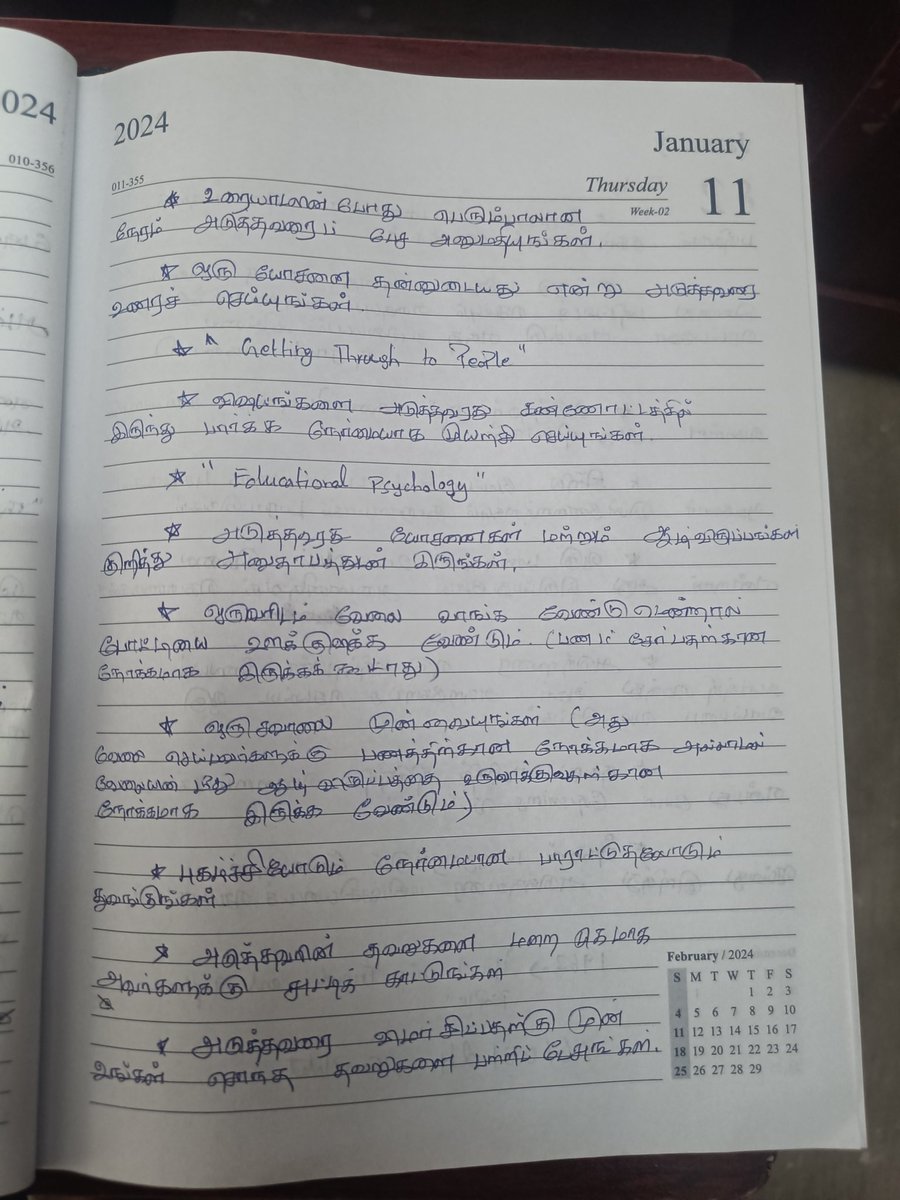 024
010-356
2024
January
011-355
Thursday
Week-02
11
★ உரையாடலின் போது பெரும்பாலான
நேரம் அடுத்தவரைப் பேச அனுமதியுங்கள்.
★ ஒரு யோசனை தன்னுடையது என்று அடுத்தவரை
உணரச் செய்யுங்கள்.
★ " Getting Through to People"
★ விஷயங்களை அடுத்தவரது கண்ணோட்டத்தில்
இருந்து பார்க்க நேர்மையாக முயற்சி செய்யுங்கள்.
★ " Educational Psychology"
★ அடுத்தவரது யோசனைகள் மற்றும் ஆழ்விருப்பங்கள்
குறித்து அனுதாபத்துடன் இருங்கள்.
★ ஒருவரிடம் வேலை வாங்க வேண்டுமென்றால்
போட்டியை ஊக்குவிக்க வேண்டும். (பணம் சேர்ப்பதற்கான
நோக்கமாக இருக்கக் கூடாது)
★ ஒரு சவாலை முன் வையுங்கள் (அது
வேலை செய்பவர்களுக்கு பணத்திற்கான நோக்கமாக அல்லாமல்
வேலையின் மீது ஆழ் விருப்பத்தை உருவாக்குவதற்கான
நோக்கமாக இருக்க வேண்டும்)
★ புகழ்ச்சியோடும் நேர்மையான பாராட்டுதலோடும்
துவங்குங்கள்
★ அடுத்தவரின் தவறுகளை மறைமுகமாக
அவர்களுக்கு சுட்டிக் காட்டுங்கள்
★ அடுத்தவரை விமர்சிப்பதற்கு முன்
உங்கள் சொந்த தவறுகளை பற்றிப் பேசுங்கள்.
February / 2024
S M T W T F S
1 2 3
4 5 6 7 8 9 10
11 12 13 14 15 16 17
18 19 20 21 22 23 24
25 26 27 28 29